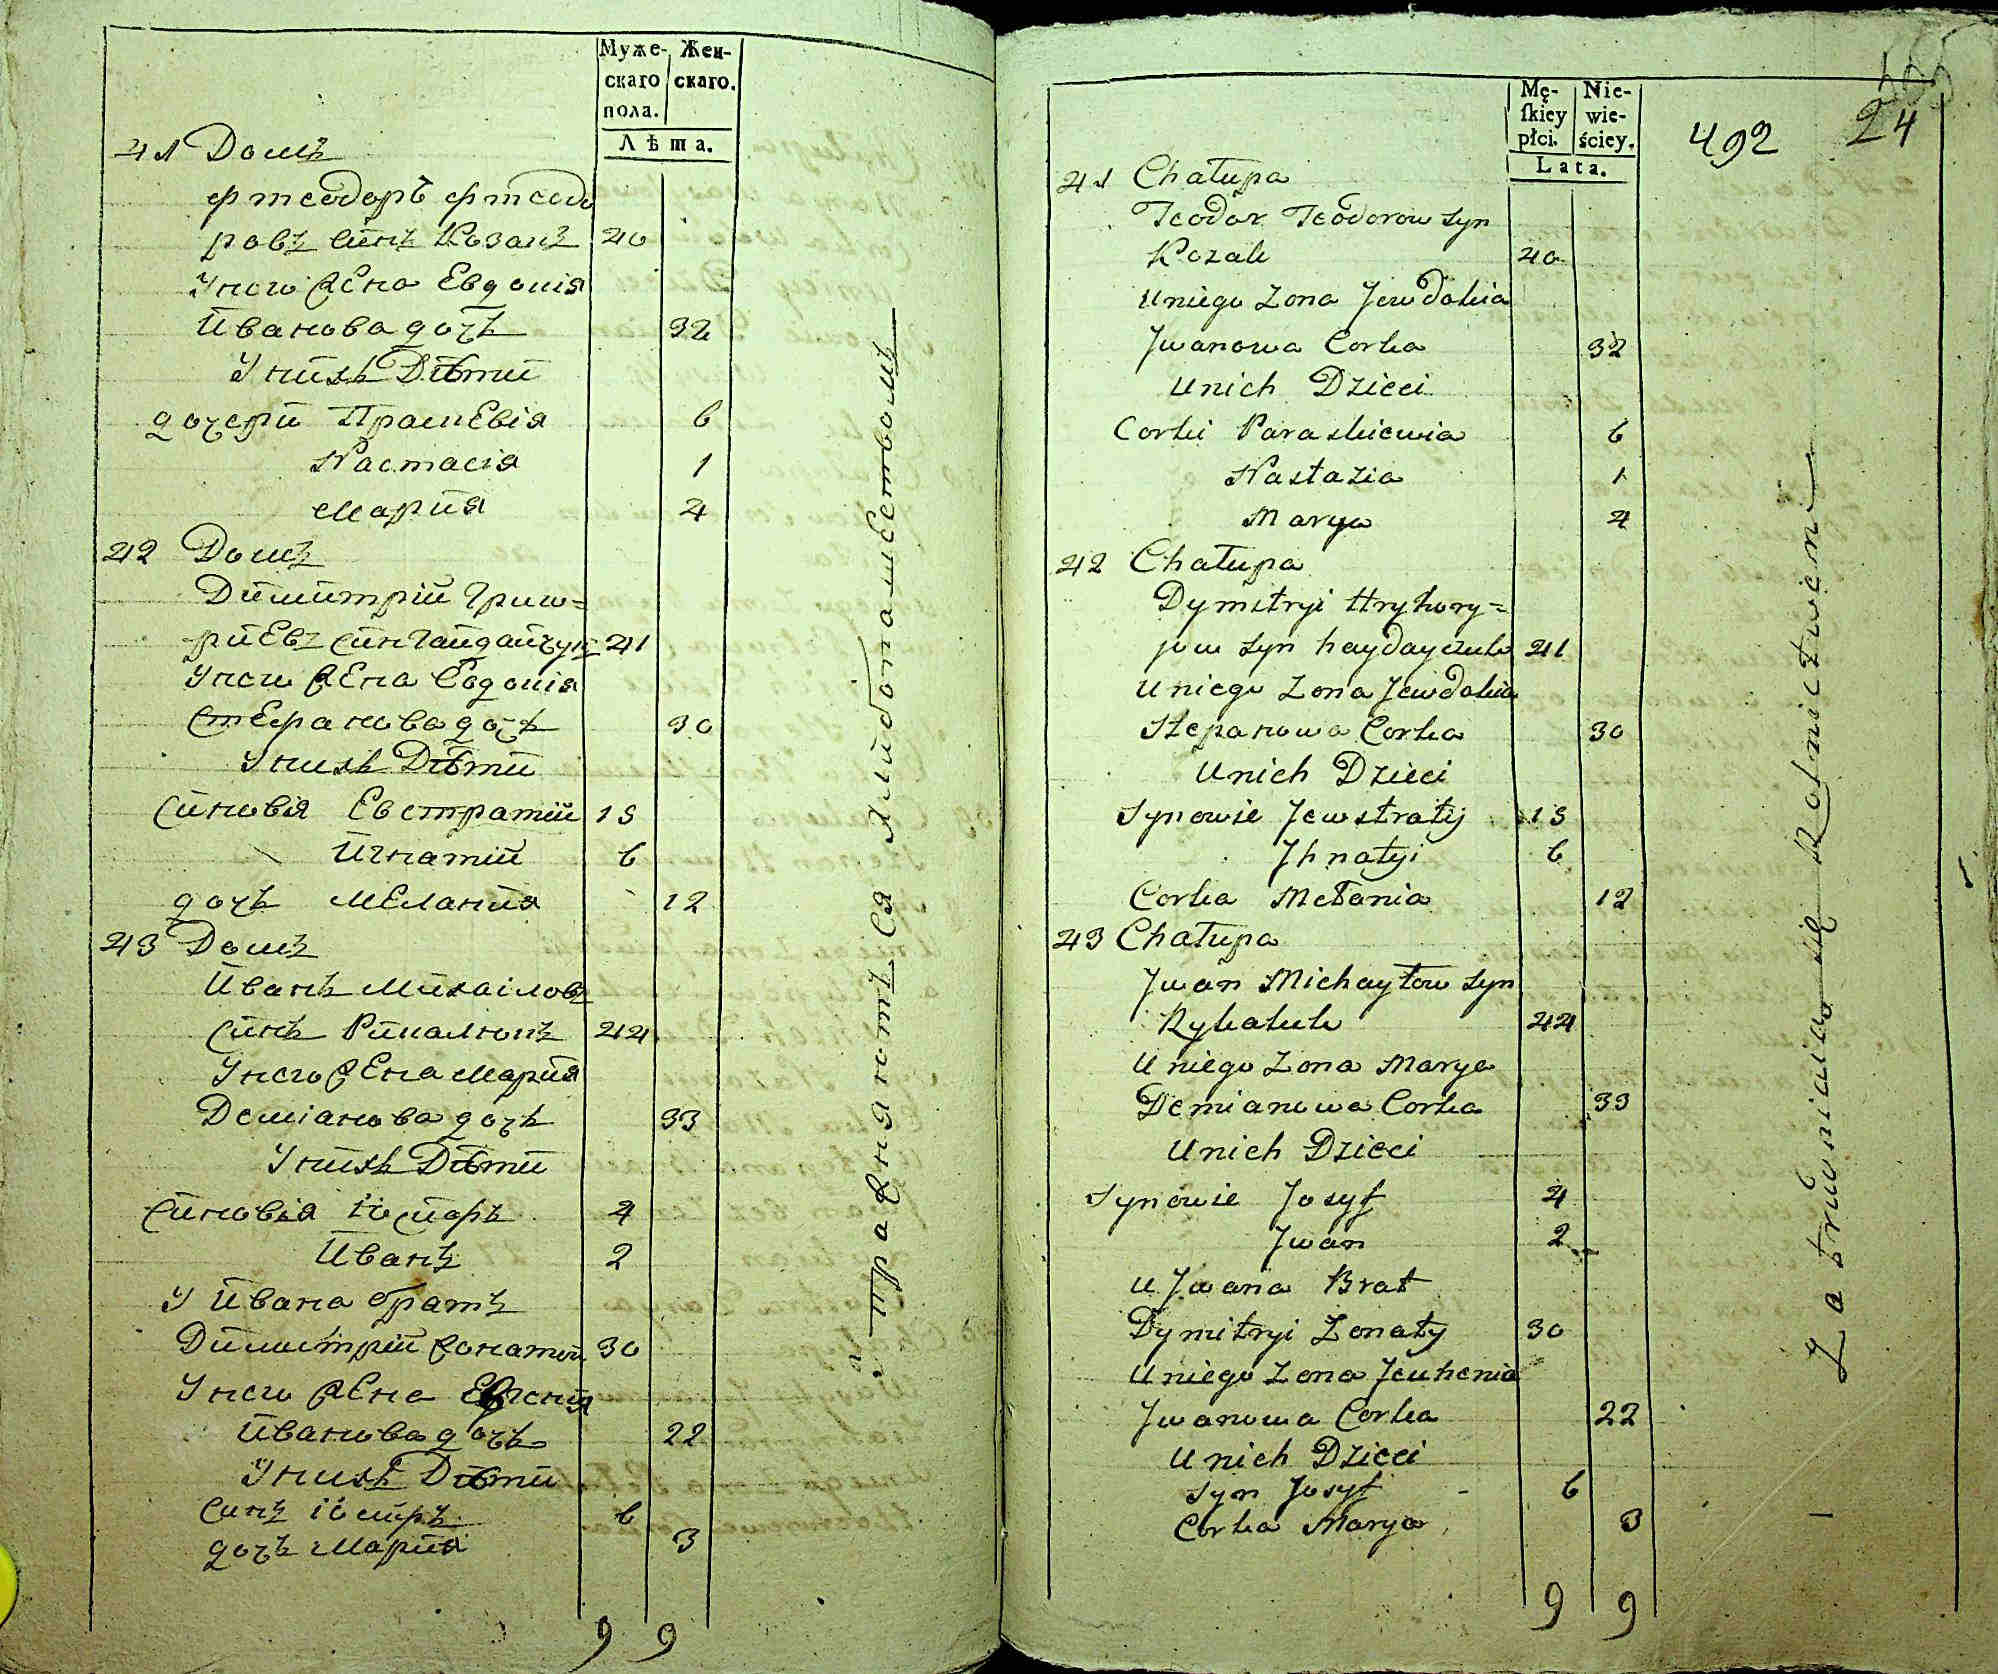 Муже- Жен-
скаго скаго.
пола.
Лѣта.
41 Домъ
Фтеодоръ Фтеодо
ровъ синъ Козакъ 40
У него Жена Евдокія
Иванова дочь 32
У нихъ Дѣти
дочери Праскевія 6
Настасія 1
Марія 4
42 Домъ
Димитрій Григо=
риевъ син Гайдайчукъ 41
У него Жена Евдокія
Стефанова дочь 30
У нихъ Дѣти
синовія Евстратій 15
Игнатій 6
дочь Меланія 12
43 Домъ
Иванъ Михаіловъ
синъ Рикалюкъ 44
У него Жена Марія
Деміанова дочь 33
У нихъ Дѣти
синовія Іосифъ 4
Иванъ 2
У Ивана братъ
Димитрій Жонатой 30
У него Жена Евгенія
Иванова дочь 22
У нихъ Дѣти
синъ Іосифъ 6
дочь Марія 3
9 9
упражняютъ ся хлѣбопашествомъ
Mę- Nie-
skiey wie-
płci. ściey.
Lata.
492
24
41 Chałupa
Teodor Teodorow syn
Kozak 40
U niego Zona Jewdokia
Jwanowa Corka 32
U nich Dzieci
Corki Paraskiewia 6
Nastazia 1
Marya 4
42 Chałupa
Dymitryi Hryhory=
jow syn haydayczuk 41
U niego Zona Jewdokia
Stepanowa Corka 30
U nich Dzieci
Synowie Jewstratij 15
Jhnatyi 6
Corka Mełania 12
43 Chałupa
Jwan Michayłow syn
Rykaluk 44
U niego Zona Marya
Demianowa Corka 33
U nich Dzieci
Synowie Josyf 4
Jwan 2
U Jwana Brat
Dymitryi Zonaty 30
U niego Zona Jeuhenia
Jwanowa Corka 22
U nich Dzieci
Syn Josyf 6
Corka Marya 3
9 9
Zatrudniaią się Rolnictwem